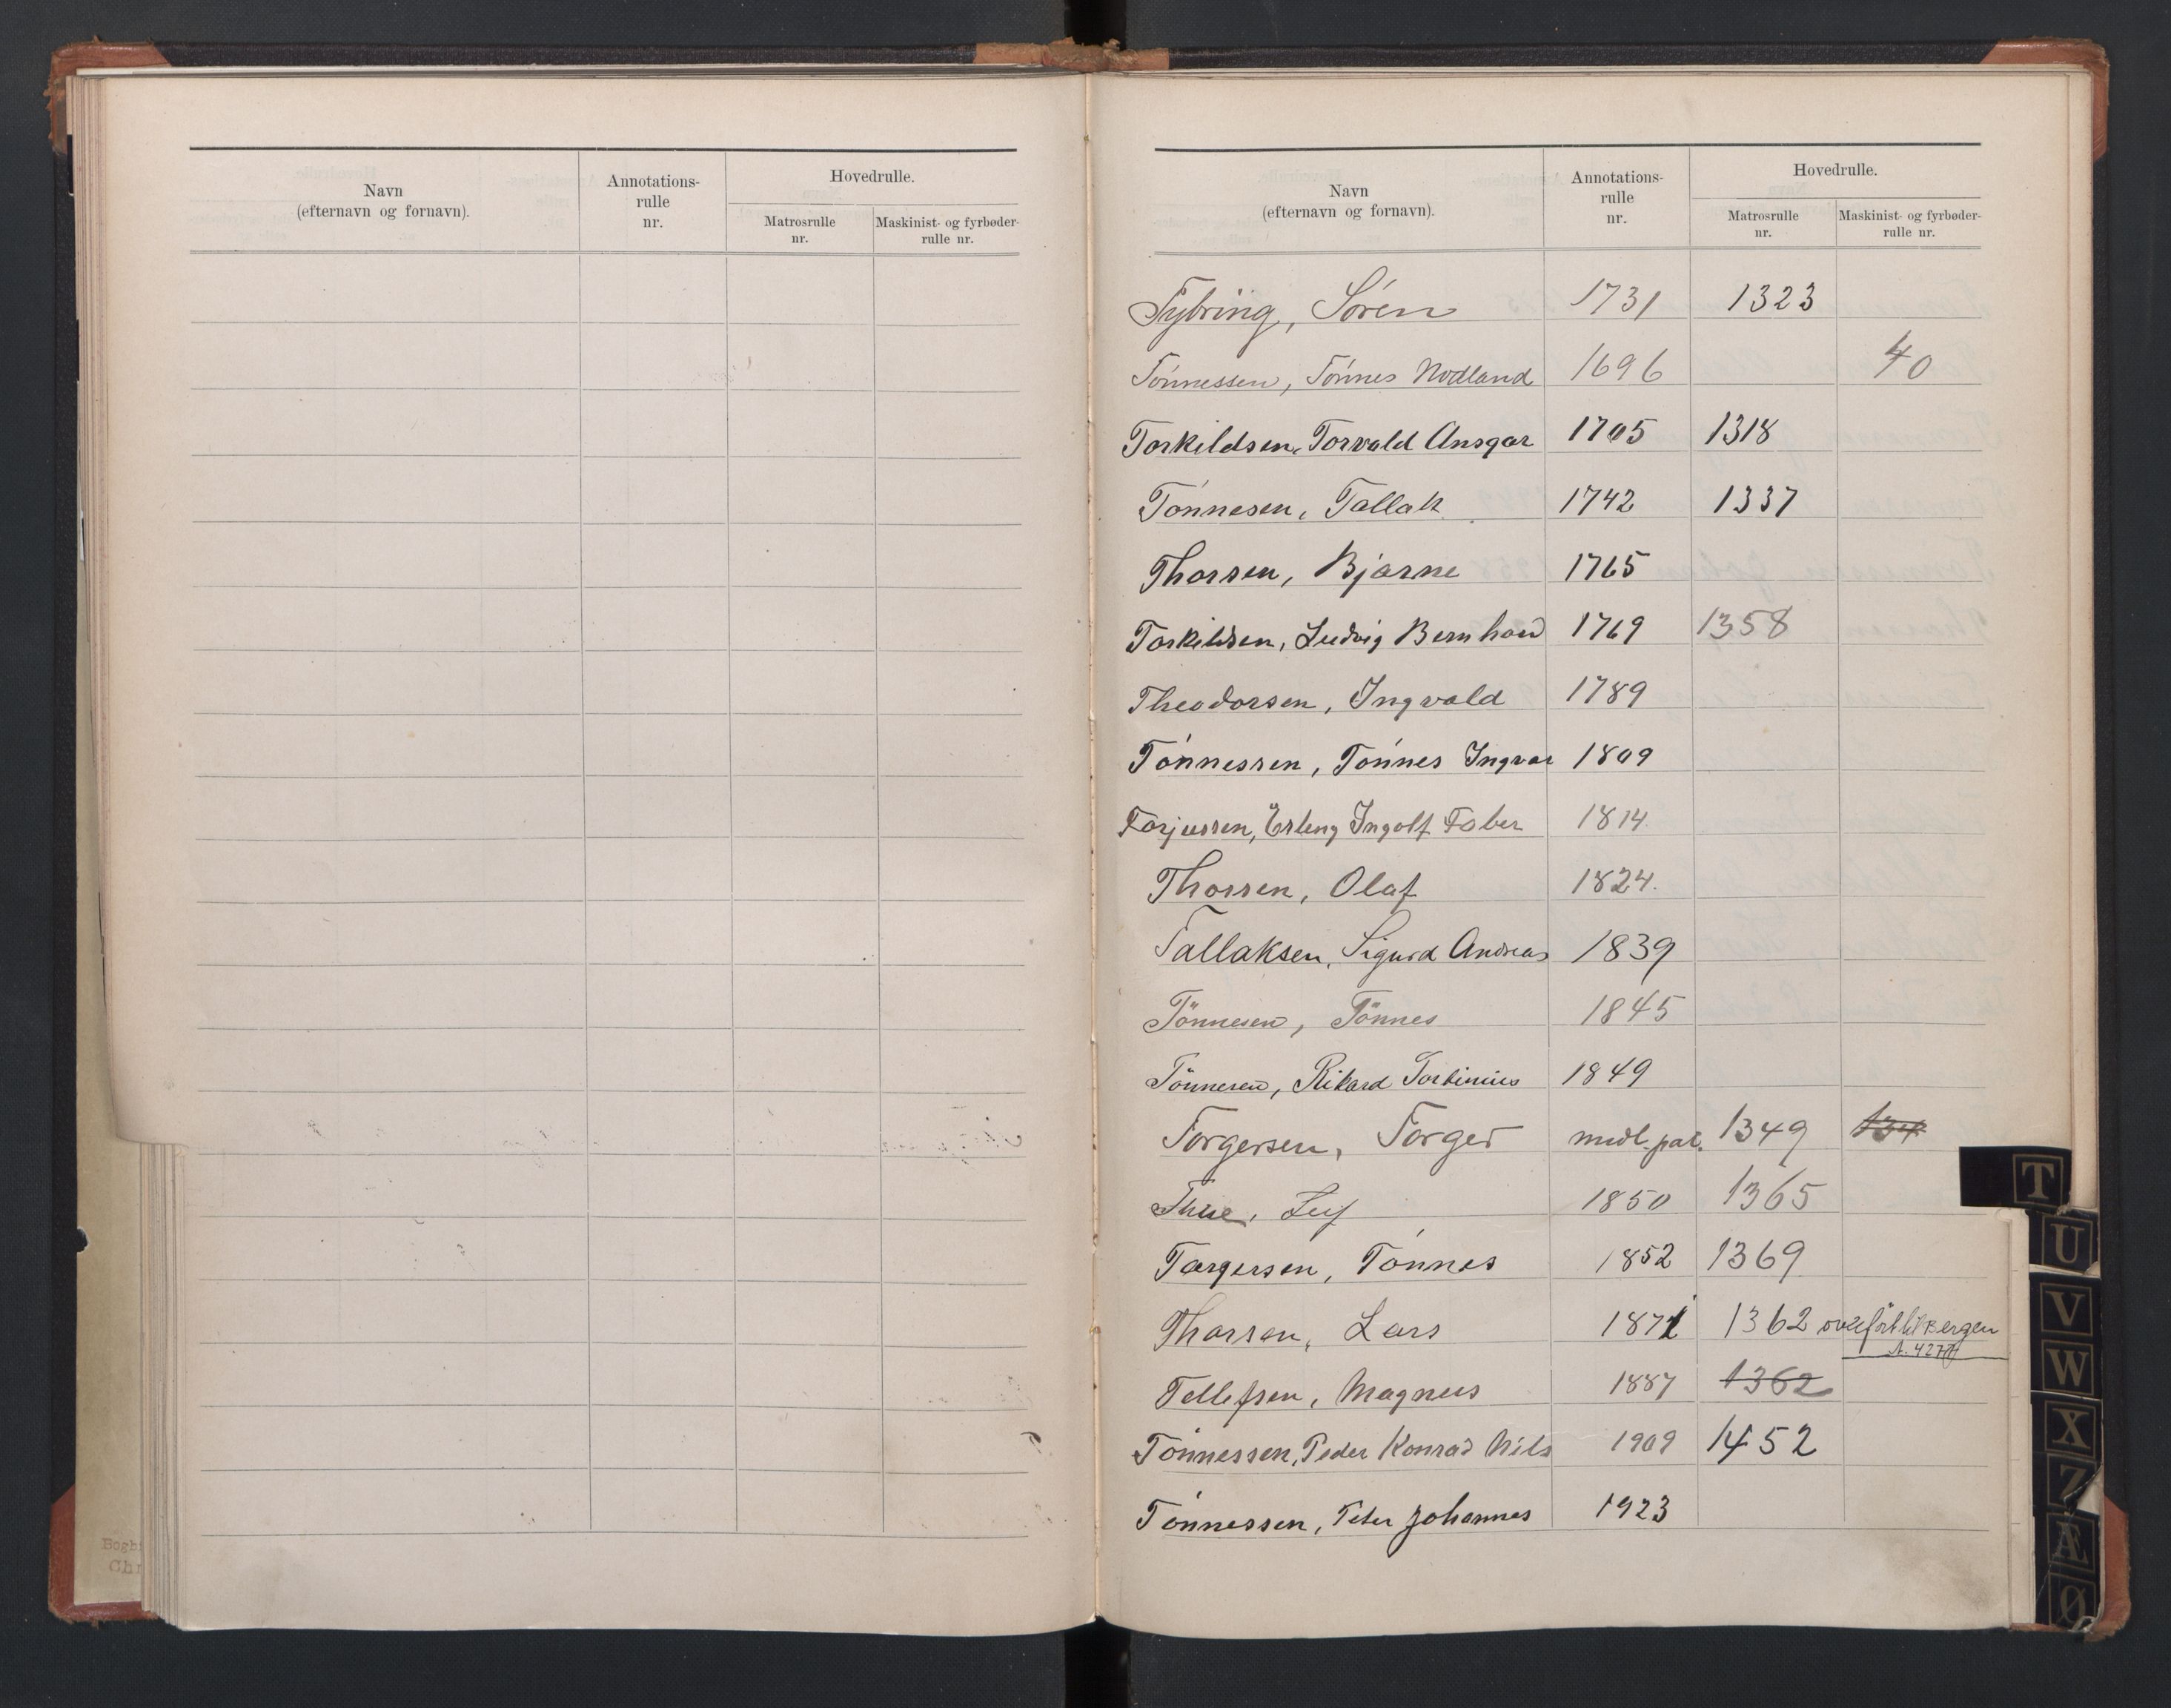 Navn
(efternavn og fornavn).
Annotations-
rulle
nr.
Hovedrulle.
Matrosrulle
nr.
Maskinist- og fyrbøder-
rulle nr.
Navn
(efternavn og fornavn).
Annotations-
rulle
nr.
Hovedrulle.
Matrosrulle
nr.
Maskinist- og fyrbøder-
rulle nr.
Tybring, Sören 1731 1323
Tönnessen, Tönnes Nodland 1696 40
Torkildsen, Torvald Ansgar 1705 1318
Tönnesen, Tallak 1742 1337
Thorsen, Bjarne 1765
Torkildsen, Ludvig Bernhard 1769 1358
Theodorsen, Ingvald 1789
Tönnessen, Tönnes Ingvar 1809
Torjussen, Erling Ingolf Faber 1814
Thorsen, Olaf 1824.
Tallaksen, Sigurd Andreas 1839
Tönnesen, Tönnes 1845
Tönnesen, Rikard Torbinius 1849
Torgersen, Torger midl. pat. 1349 134
Thue, Leif 1850 1365
Torgersen, Tönnes 1852 1369
Thorsen, Lars 1871 1362 overført til Bergen
A. 4277
Tellefsen, Magnus 1887 1362
Tönnessen, Peder Konrad Nils 1909 1452
Tönnessen, Peter Johannes 1923
T
U
V
W
X
Z
Æ
Ø
Bogb
Chr